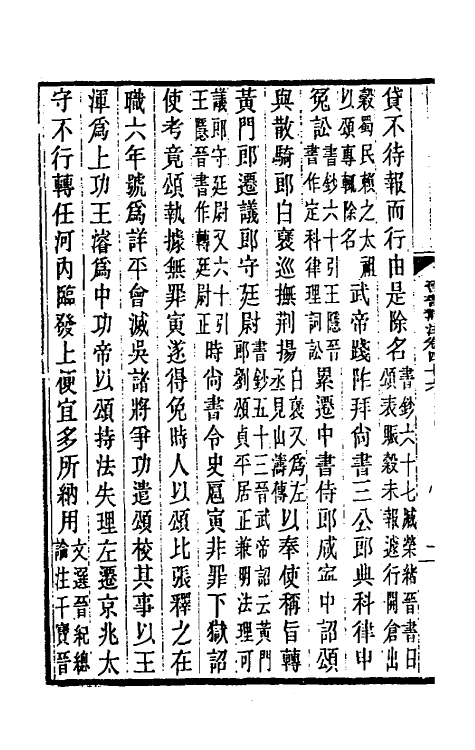 貸不待報而行由是除名書鈔六十七臧榮緒晉書曰頌表賑穀未報遽行開倉出
穀蜀民賴之太祖以頌專輒除名武帝踐阼拜尚書三公郎典科律申
冤訟書鈔六十引王隱晉書作定科律理詞訟累遷中書侍郎咸寧中詔頌
與散騎郎白褒巡撫荆揚白褒又為左丞見山濤傳以奉使稱旨轉
黃門郎遷議郎守廷尉書鈔五十三晉武帝詔云黃門郎劉頌貞平居正兼明法理可
議郎守廷尉又六十引王隱晉書作轉廷尉正時尚書令史扈寅非罪下獄詔
使考竟頌執據無罪寅遂得免時人以頌比張釋之在
職六年號為詳平會滅吳諸將爭功遣頌校其事以王
渾為上功王濬為中功帝以頌持法失理左遷京兆太
守不行轉任河內臨發上便宜多所納用文選晉紀總論注干寶晉